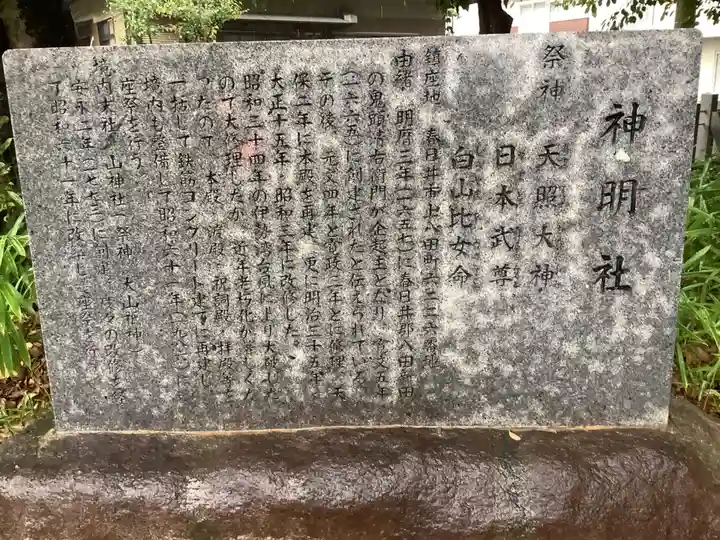 神明社
祭神 天照大神
日本武尊
白山比女命
鎮座地 春日井市上八田町六二二六番地
由緒 明暦三年(一六五七)に春日井郡八田新田
の鬼頭 右衛門が企起主となり 寛文五年
(一六六五)に創建されたと伝えられている。
その後 元文四年と寛政二年とに修理 天
保二年に本殿を再建 更に明治三十五年
大正十五年 昭和三年に改修した。
昭和三十四年の伊勢湾台風により大破した
ので大修理したが 近年老朽化が著しくな
ったので 本殿 渡殿 祝詞殿 拝殿等を
一括して鉄筋コンクリート建てに再建し
境内も整備して昭和六十一年(一九八六)に
座祭を行う。
境内末社 山神社(祭神 大山祇神)
安永二年(一七七三)に創建
昭和六十一年に改修し